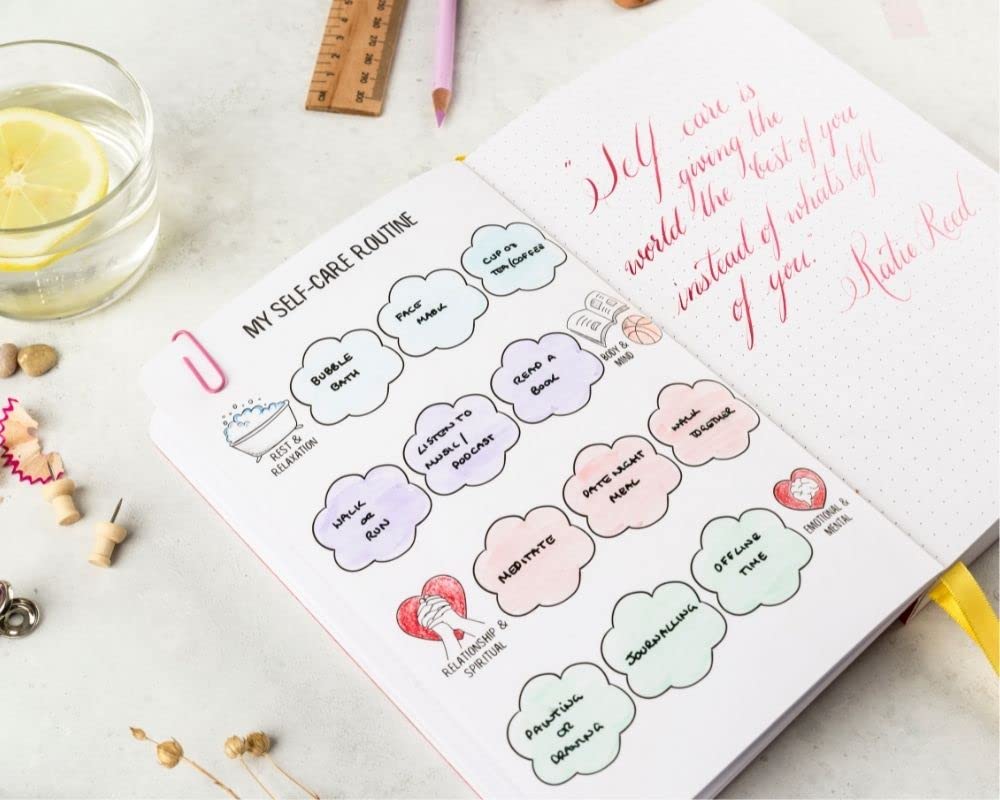 MY SELF-CARE ROUTINE
REST &
RELAXATION
BUBBLE
BATH
FACE
MASK
CUP OF
TEA/COFFEE
WALK
OR
RUN
LISTEN TO
MUSIC/
PODCAST
READ A
BOOK
BODY &
MIND
RELATIONSHIP &
SPIRITUAL
MEDITATE
DATE NIGHT
MEAL
WALK
TOGETHER
PAINTING
OR
DRAWING
JOURNALLING
OFFLINE
TIME
EMOTIONAL &
MENTAL
"Self care is
giving the
world the best of you
instead of whats left
of you."
Katie Reed